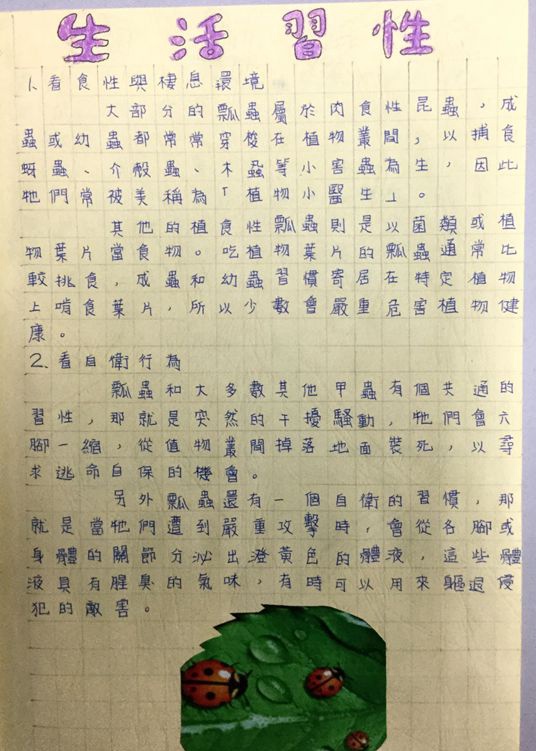 生活習性
1、看食性與棲息環境
大部分的瓢蟲屬於肉食性昆蟲，成
蟲或幼蟲都常常穿梭在植物叢間，以捕食
蚜蟲、介殼蟲、木蝨等小害蟲為生，因此
牠們常被美稱為「植物小醫生」。
其他的植食性瓢蟲則是以菌類或植
物葉片當食物。吃植物葉片的瓢蟲通常比
較挑食，成蟲和幼蟲習慣寄居在特定植物
上啃食葉片，所以少數會嚴重危害植物健
康。
2、看自衛行為
瓢蟲和大多數其他甲蟲有個共通的
習性，那就是突然的干擾騷動，牠們會六
腳一縮，從值物叢間掉落地面裝死，以尋
求逃命自保的機會。
另外瓢蟲還有一個自衛的習慣，那
就是當牠們遭到嚴重攻擊時，會從各腳或
身體的關節分泌出澄黃色的體液，這些體
液具有腥臭的氣味，有時可以用來驅退侵
犯的敵害。